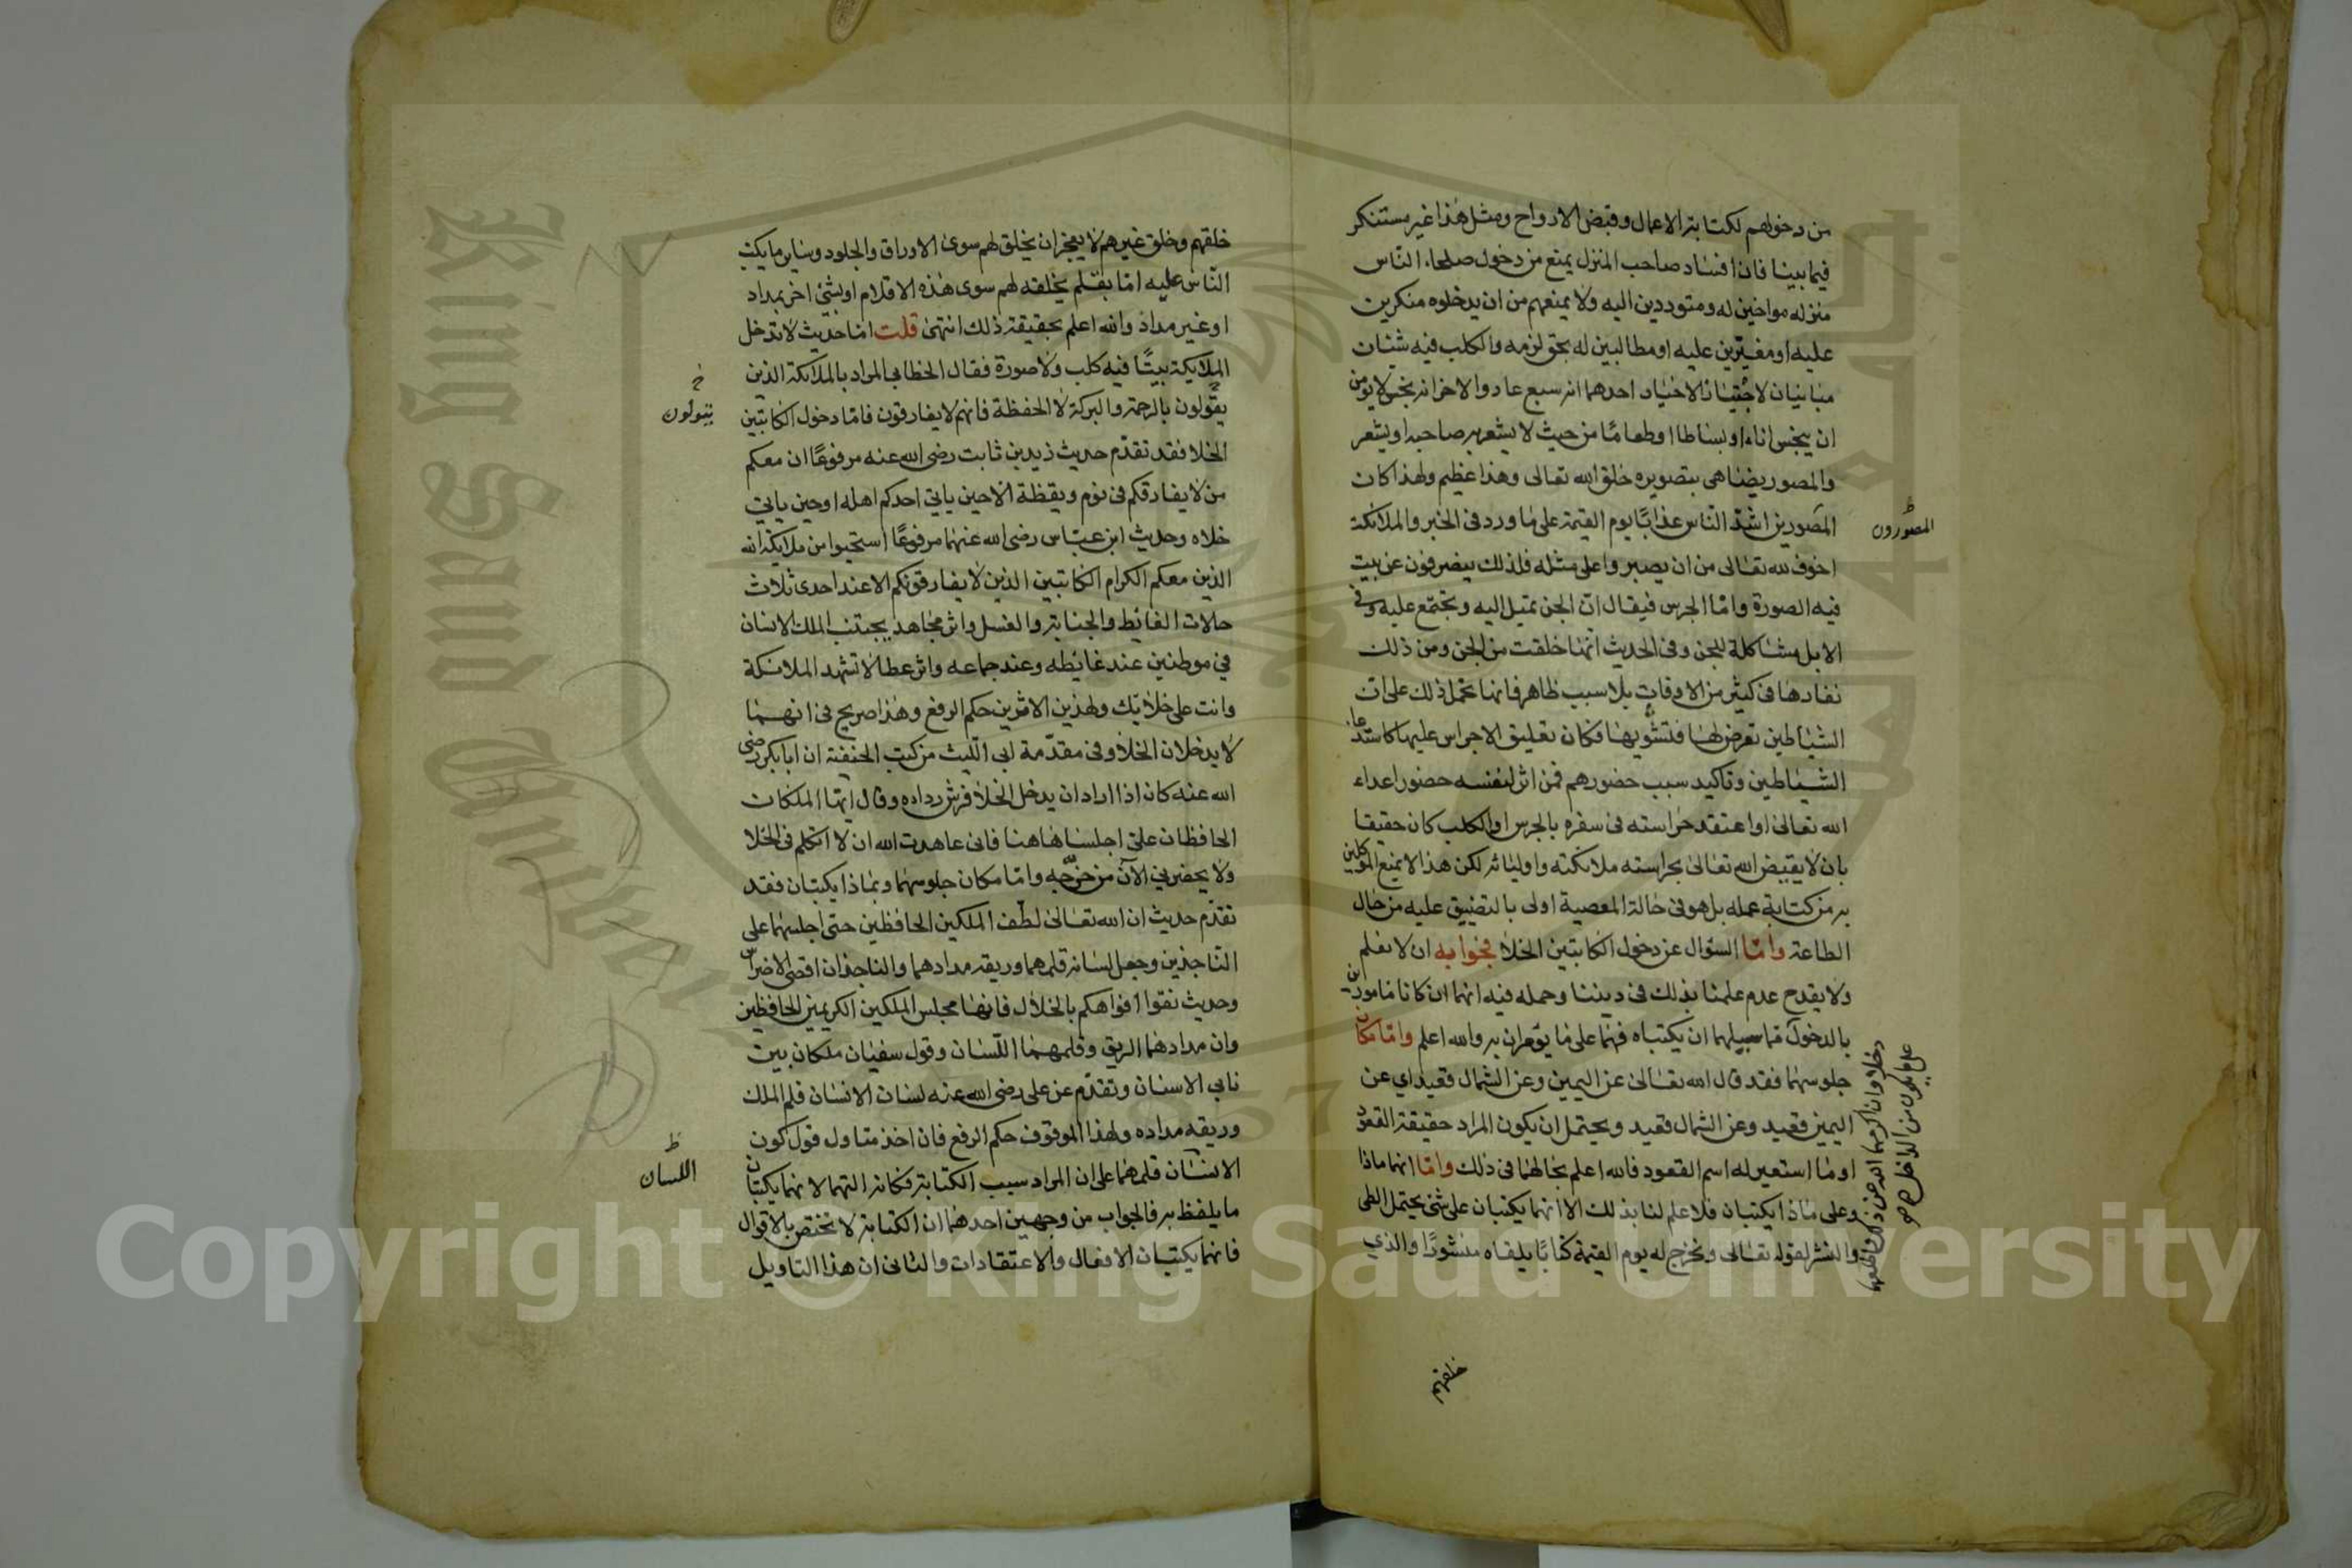 من دخولهم لكتابة الاعمال وقبض الارواح ومثل هذا غير مستنكر
فيما بيننا فان افساد صاحب المنزل يمنع من دخول صلحاء الناس
منزله مواخين له ومتوددين اليه ولا يمنعهم من ان يدخلوه منكرين
عليه او مغيّرين عليه او مطالبين له بحق لزمه والكلب فيه شيئان
مباينان لاجتيان الاختيار احدهما انه سبع عاد والاخر انه نجس لا يؤمن
ان ينجس اناء او بساطا او طعاما من حيث لا يشعر به صاحبه او يشعر
والمصور يضاهى بتصويره خلق الله تعالى وهذا عظيم ولهذا كان
المصورين اشدّ الناس عذابًا يوم القيمة على ما ورد فى الخبر والملائكة
المصورون
اخوف لله تعالى من ان يصبروا على مثله فلذلك ينصرفون عن بيت
فيه الصورة وامّا الجرس فيقال ان الجن تميل اليه وتجتمع عليه وفي
الابل مشاكلة للجن وفى الحديث انها خلقت من الجن ومن ذلك
نفارها فى كثير من الاوقات بلا سبب ظاهر فانها تحمل ذلك على ان
الشياطين تعرض لها فتشوبها فكان تعليق الاجراس عليها كاستدعاء
الشياطين وتاكيد سبب حضورهم فمن اثر لنفسه حضور اعداء
الله تعالى او اعتقد حراسته فى سفره بالجرس او الكلب كان حقيقا
بان لا يقيض الله تعالى بحراسته ملائكته واوليائه لكن هذا لا يمنع الموكلين
به من كتابة عمله بل هو فى حالة المعصية اولى بالتضييق عليه من حال
الطاعة وامّا السؤال عن دخول الكاتبين الخلا فجوابه ان لا نعلم
ولا يقدح عدم علمنا بذلك فى ديننا وحمله فيه انهما ان كانا مامورين
بالدخول فما سبيلهما ان يكتباه فهما على ما يؤمران به والله اعلم وامّا مكان
دخلا وان اكرمهما الله عن ذلك
على ما يكون من الداخل صح
جلوسهما فقد قال الله تعالى عن اليمين وعن الشمال قعيد اي عن
اليمين قعيد وعن الشمال قعيد ويحتمل ان يكون المراد حقيقة القعود
او ما استعير له اسم القعود فالله اعلم بحالهما فى ذلك وامّا انهما ماذا
وعلى ماذا يكتبان فلا علم لنا بذلك الا انهما يكتبان على شئ يحتمل الطي
والنشر لقوله تعالى ونخرج له يوم القيمة كتابًا يلقاه منشورًا والذي
خلقهم
خلقهم وخلق غيرهم لا يعجز ان يخلق لهم سوى الاوراق والجلود وسائر ما يكتب
الناس عليه امّا بقلم يخلقه لهم سوى هذه الاقلام او بشئ اخر بمداد
او غير مداد والله اعلم بحقيقة ذلك انتهى قلت امّا حديث لا تدخل
الملايكة بيتًا فيه كلب ولا صورة فقال الخطابى المراد بالملائكة الذين
يقولون بالرحمة والبركة لا الحفظة فانهم لا يفارقون فامّا دخول الكاتبين
ينزلون
الخلا فقد تقدّم حديث زيد بن ثابت رضى الله عنه مرفوعًا ان معكم
من لا يفارقكم فى نوم ويقظة الا حين ياتي احدكم اهله او حين ياتي
خلاه وحديث ابن عبّاس رضى الله عنهما مرفوعًا استحيوا من ملايكة الله
الذين معكم الكرام الكاتبين الذين لا يفارقونكم الا عند احدى ثلاث
حالات الغائط والجنابة والغسل واثر مجاهد يجتنب الملك الانسان
في موطنين عند غائطه وعند جماعه واثر عطا لا تشهد الملائكة
وانت على خلائك ولهذين الاثرين حكم الرفع وهذا صريح فى انهما
لا يدخلان الخلا وفى مقدّمة ابى الليث من كتب الحنفية ان ابا بكر رضى
الله عنه كان اذا اراد ان يدخل الخلا فرش رداءه وقال ايها الملكان
الحافظان علىّ اجلسا هاهنا فانى عاهدت الله ان لا اتكلم فى الخلا
ولا يحضرنى الآن من خرّجه وامّا مكان جلوسهما وبماذا يكتبان فقد
تقدّم حديث ان الله تعالى لطّف الملكين الحافظين حتى اجلسهما على
الناجذين وجعل لسانه قلمهما وريقه مدادهما والناجذان اقصى الاضراس
وحديث نقوا افواهكم بالخلال فانها مجلس الملكين الكريمين الحافظين
وان مدادهما الريق وقلمهما اللّسان وقول سفيان ملكان بين
نابى الاسنان وتقدّم عن على رضى الله عنه لسان الانسان قلم الملك
وريقه مداده ولهذا الموقوف حكم الرفع فان اخذ متاول قول كون
الانسان قلمهما على ان المراد سبب الكتابة فكانه التهما لانهما يكتبان
اللسان
ما يلفظ به فالجواب من وجهين احدهما ان الكتابة لا تختص بالاقوال
فانهما يكتبان الافعال والاعتقادات والثانى ان هذا التاويل
King Saud University
1957
Copyright © King Saud University